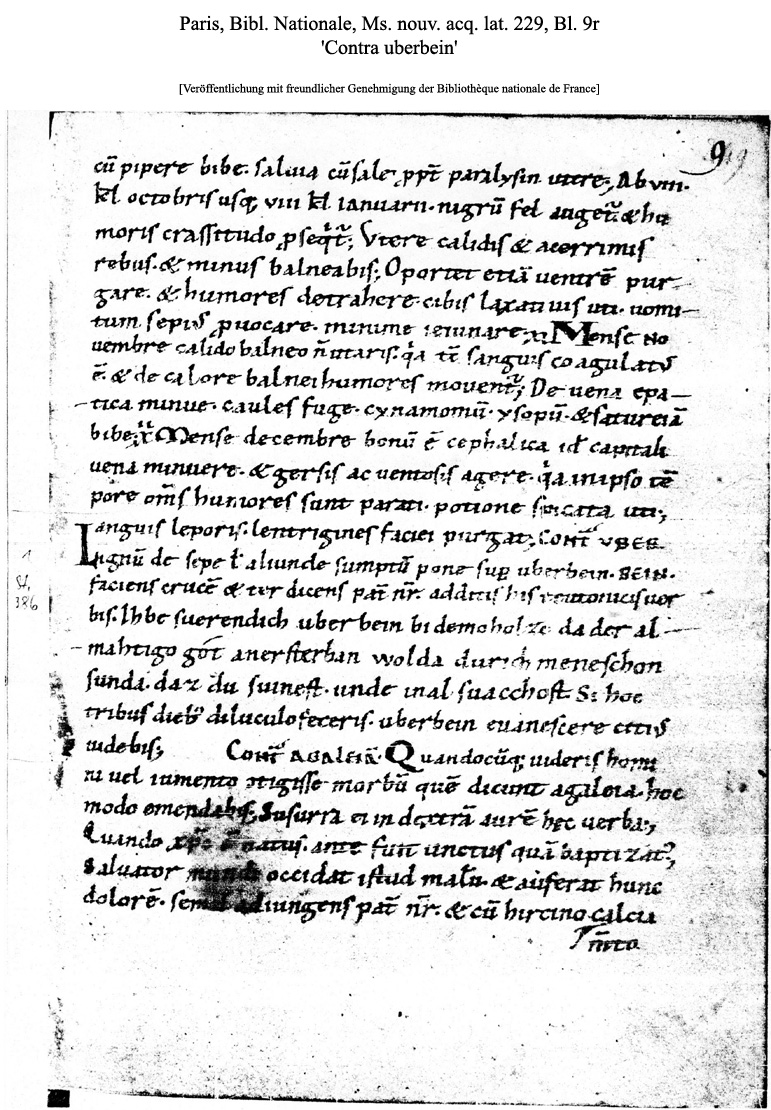 Paris, Bibl. Nationale, Ms. nouv. acq. lat. 229, Bl. 9r
'Contra uberbein'
[Veröffentlichung mit freundlicher Genehmigung der Bibliothèque nationale de France]
9
cū pipere bibe. saluia cū sale ꝓpt̄ paralysin utere; Ab viii.
kl octobris usq; viii kl ianuarii. nigrū fel auget̄ & hu
moris crassitudo ꝓseqt̄; Vtere calidis & acerrimis
rebus. & minus balneabis; Oportet etiā uentrē pur
gare. & humores detrahere. cibis laxatiuis uti. uomi
tum sepius ꝓuocare. minime ieiunare; Mense no
uembre calido balneo n̄ utaris. qa tē sanguis coagulatus
ē. & de calore balnei humores mouent̄; De uena epa
tica minue. caules fuge. cynamomū. ysopū. & satureiā
bibe; Mense decembre bonū ē cephalica id capitali
uena minuere. & gersis ac uentosis agere. qa in ipso tē
pore om̄s humores sunt parati. potione spicata uti;
Sanguis leporis. lentigines faciei purgat; CONT̄ VBER
Lignū de sepe ł aliunde sumptū pone sup uberbein. BEIN.
faciens crucē & ter dicens pat̄ nr̄. additis his teutonicis uer
bis. Ihbe suerendich uberbein bi demo holze da der al
mahtigo got anersterban wolda durich meneschon
sunda. daz du suinest. unde in al suacchost. Si hoc
tribus dieb; diluculo feceris. uberbein euanescere citius
uidebis; CONT̄ AGALEIA. Quandocūq; uideris homi
ni uel iumento ꝯtigisse morbū quē dicunt agaleia. hoc
modo emendabis; Susurra ei in dextrā aurē hec uerba;
Quando xp̄c ē natus. ante fuit unctus quā baptizat;
Saluator mundi occidat istud malū. & auferat hunc
dolorē. adiungens pat̄ nr̄. & cū hircino calcia
m̄to